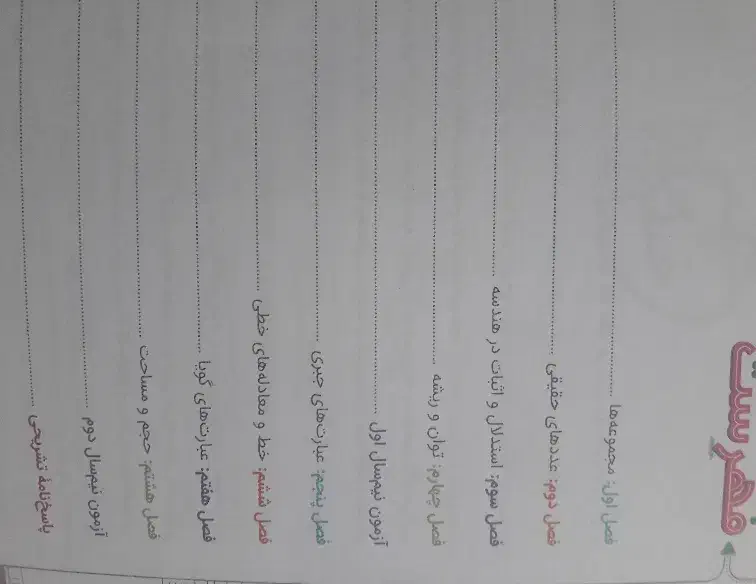 فهرست
فصل اول: مجموعه‌ها
فصل دوم: عددهای حقیقی
فصل سوم: استدلال و اثبات در هندسه
فصل چهارم: توان و ریشه
آزمون نیم‌سال اول
فصل پنجم: عبارت‌های جبری
فصل ششم: خط و معادله‌های خطی
فصل هفتم: عبارت‌های گویا
فصل هشتم: حجم و مساحت
آزمون نیم‌سال دوم
پاسخ‌نامهٔ تشریحی